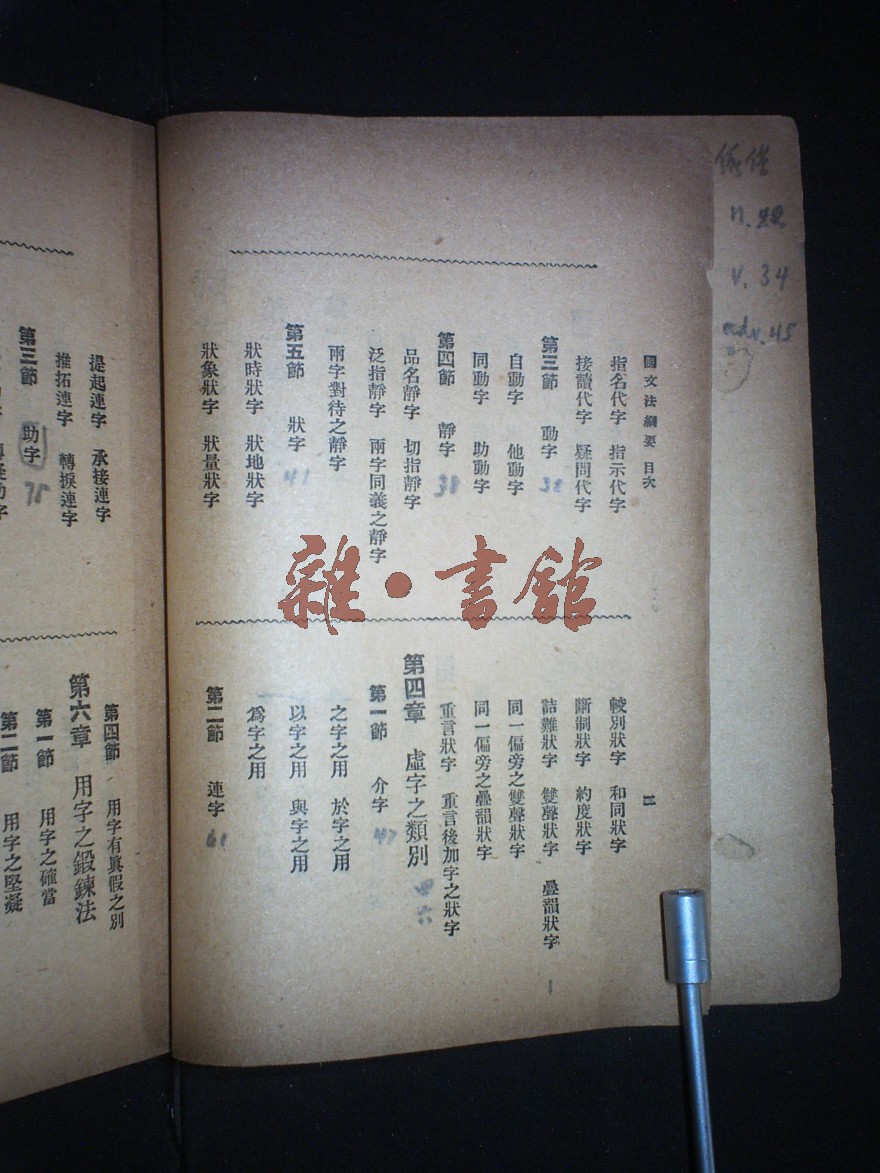 國文法綱要 目次
二
指名代字 指示代字
接讀代字 疑問代字
第三節 動字 32
自動字 他動字
同動字 助動字
第四節 靜字 38
品名靜字 切指靜字
泛指靜字 兩字同義之靜字
兩字對待之靜字
第五節 狀字 41
狀時狀字 狀地狀字
狀象狀字 狀量狀字
較別狀字 和同狀字
斷制狀字 約度狀字
詰難狀字 雙聲狀字 疊韻狀字
同一偏旁之雙聲狀字
同一偏旁之疊韻狀字
重言狀字 重言後加字之狀字
第四章 虛字之類別 四六
第一節 介字 47
之字之用 於字之用
以字之用 與字之用
爲字之用
第二節 連字 61
提起連字 承接連字
推拓連字 轉捩連字
第三節 助字 75
第四節 用字有眞假之別
第六章 用字之鍛鍊法
第一節 用字之確當
第二節 用字之堅凝
n. 22
v. 34
adv. 45
雜·書館